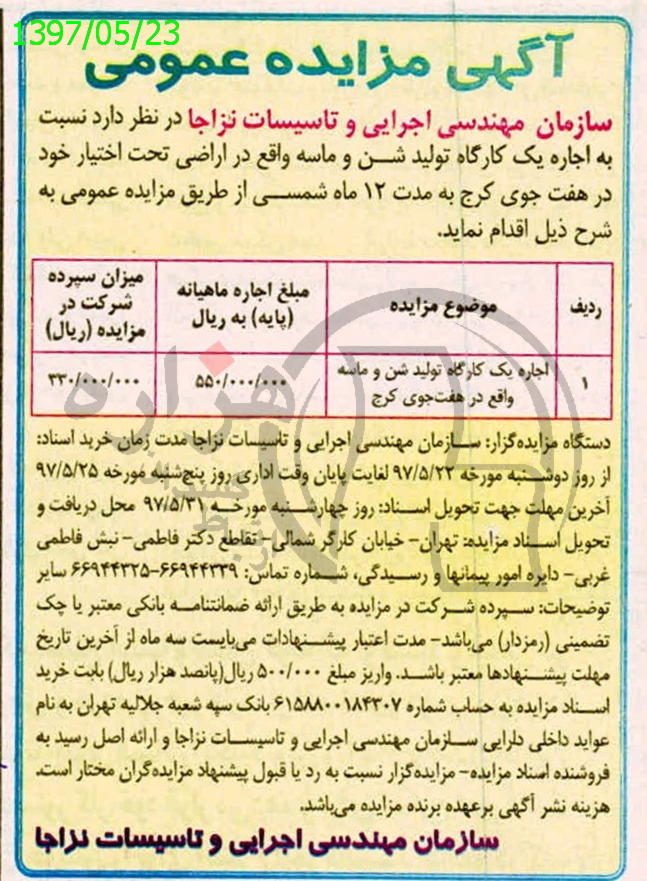 1397/05/23
آگهی مزایده عمومی
سازمان مهندسی اجرایی و تاسیسات نزاجا در نظر دارد نسبت
به اجاره یک کارگاه تولید شن و ماسه واقع در اراضی تحت اختیار خود
در هفت جوی کرج به مدت ۱۲ ماه شمسی از طریق مزایده عمومی به
شرح ذیل اقدام نماید.
ردیف موضوع مزایده مبلغ اجاره ماهیانه (پایه) به ریال میزان سپرده شرکت در مزایده (ریال)
۱ اجاره یک کارگاه تولید شن و ماسه واقع در هفت‌جوی کرج ۵۵۰/۰۰۰/۰۰۰ ۳۳۰/۰۰۰/۰۰۰
دستگاه مزایده‌گزار: سازمان مهندسی اجرایی و تاسیسات نزاجا مدت زمان خرید اسناد:
از روز دوشنبه مورخه ۹۷/۵/۲۲ لغایت پایان وقت اداری روز پنج‌شنبه مورخه ۹۷/۵/۲۵
آخرین مهلت جهت تحویل اسناد: روز چهارشنبه مورخه ۹۷/۵/۳۱ محل دریافت و
تحویل اسناد مزایده: تهران- خیابان کارگر شمالی- تقاطع دکتر فاطمی- نبش فاطمی
غربی- دایره امور پیمانها و رسیدگی، شماره تماس: ۶۶۹۴۴۳۳۹-۶۶۹۴۴۳۲۵ سایر
توضیحات: سپرده شرکت در مزایده به طریق ارائه ضمانتنامه بانکی معتبر یا چک
تضمینی (رمزدار) می‌باشد- مدت اعتبار پیشنهادات می‌بایست سه ماه از آخرین تاریخ
مهلت پیشنهادها معتبر باشد. واریز مبلغ ۵۰۰/۰۰۰ ریال(پانصد هزار ریال) بابت خرید
اسناد مزایده به حساب شماره ۶۱۵۸۸۰۰۱۸۴۳۰۷ بانک سپه شعبه جلالیه تهران به نام
عواید داخلی دارایی سازمان مهندسی اجرایی و تاسیسات نزاجا و ارائه اصل رسید به
فروشنده اسناد مزایده- مزایده‌گزار نسبت به رد یا قبول پیشنهاد مزایده‌گران مختار است.
هزینه نشر آگهی برعهده برنده مزایده می‌باشد.
سازمان مهندسی اجرایی و تاسیسات نزاجا